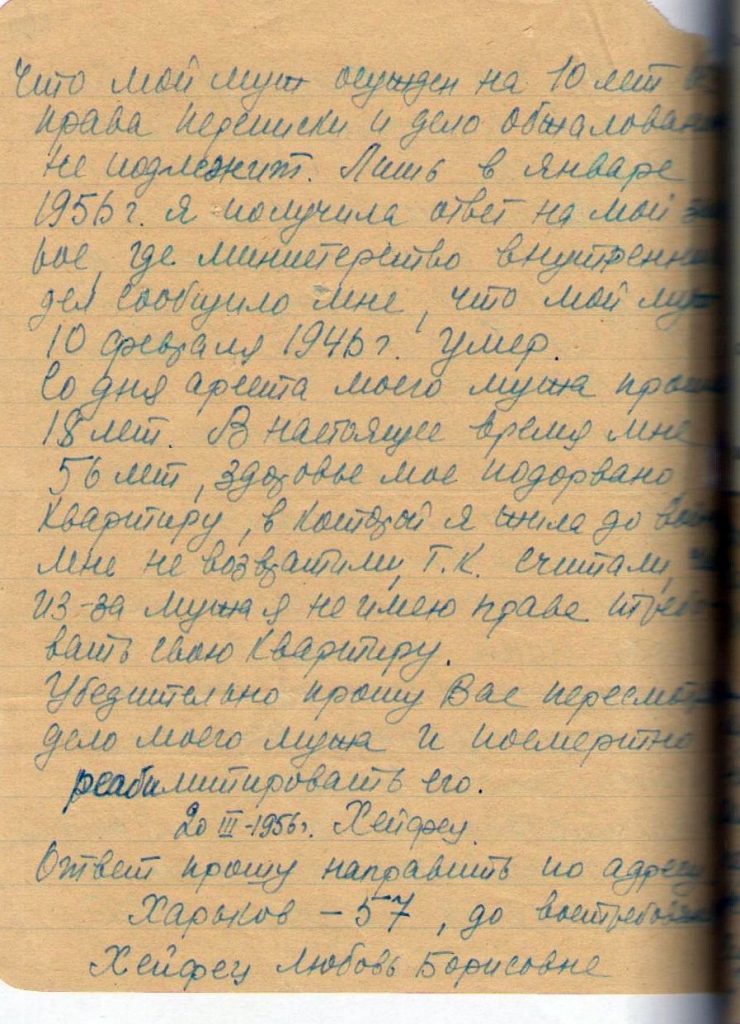 что мой муж осужден на 10 лет
права переписки и дело обжалован
не подлежит. Лишь в январе
1956г. я получила ответ на мой
вое, где министерство внутренни
дел сообщило мне, что мой муж
10 февраля 1946г. умер.
Со дня ареста моего мужа прош
18 лет. В настоящее время мне
56 лет, здоровье мое подорвано
Квартиру, в которой я жила до
мне не возвратили, т.к. считали,
из-за мужа я не имею праве
вать свою квартиру.
Убедительно прошу Вас пересмот
дело моего мужа и посмертно
реабилитировать его.
20 III-1956г. Хейфец
Ответ прошу направить по адресу
Харьков - 57, до востребован
Хейфец Любовь Борисовне